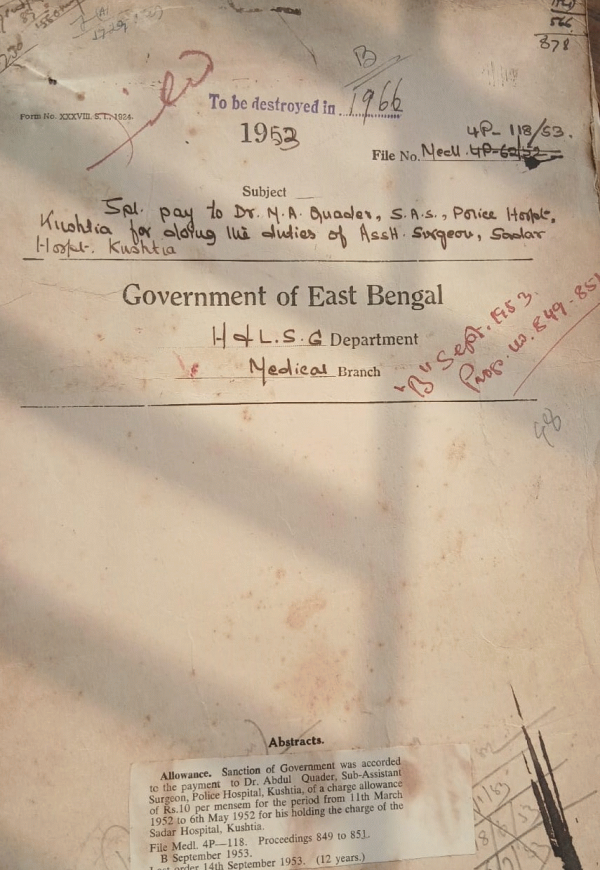 566
878
B
To be destroyed in 1966
Form No. XXXVIII. S.T., 1924.
1953
4P-118/53.
File No. Medl. 4P-62/52
Subject
Spl. pay to Dr. M.A. Quader, S.A.S., Police Hospl.,
Kushtia for doing the duties of Asstt. Surgeon, Sadar
Hospl. Kushtia
Government of East Bengal
H & L.S.G Department
Medical Branch
"B" Sept. 1953.
Progs. no. 849-851
98
Abstracts.
Allowance. Sanction of Government was accorded
to the payment to Dr. Abdul Quader, Sub-Assistant
Surgeon, Police Hospital, Kushtia, of a charge allowance
of Rs.10 per mensem for the period from 11th March
1952 to 6th May 1952 for his holding the charge of the
Sadar Hospital, Kushtia.
File Medl. 4P—118. Proceedings 849 to 851.
B September 1953.
Last order 14th September 1953. (12 years.)